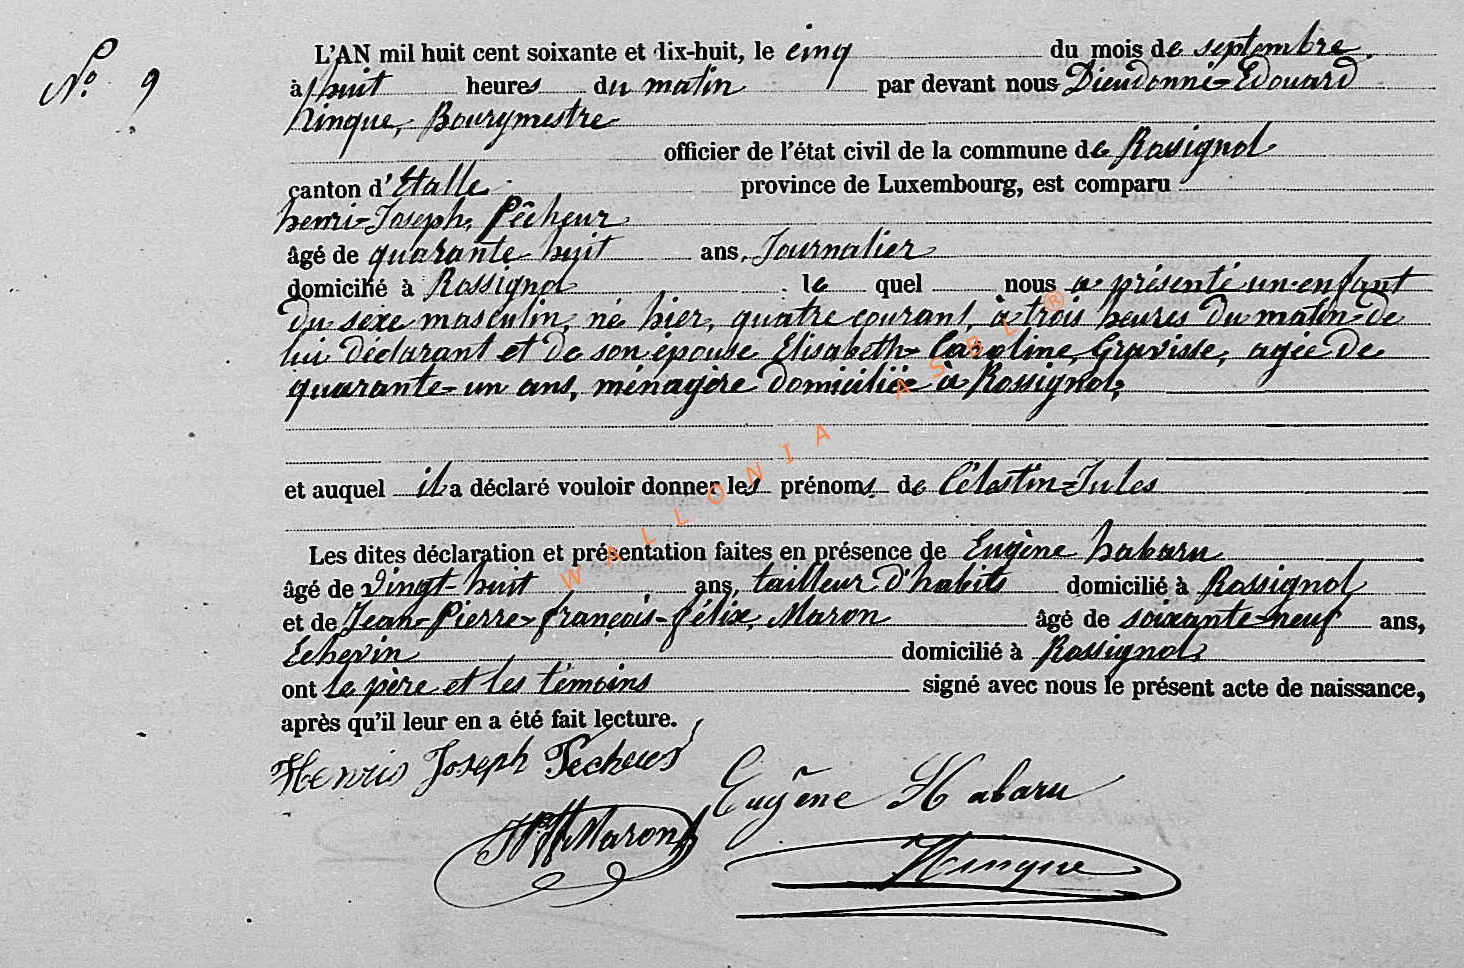 N.º 9
L'AN mil huit cent soixante et dix-huit, le cinq du mois de septembre
à huit heures du matin par devant nous Dieudonné-Edouard
hinque, Bourgmestre
officier de l'état civil de la commune de Rossignol
canton d'Etalle province de Luxembourg, est comparu
henri-Joseph, Pêcheur
âgé de quarante huit ans, Journalier
domicilié à Rossignol le quel nous a présenté un enfant
du sexe masculin, né hier, quatre courant, à trois heures du matin de
lui déclarant et de son épouse Elisabeth-Caroline, Gravisse, agée de
quarante-un ans, ménagère domiciliée à Rossignol,
et auquel il a déclaré vouloir donner les prénoms de Célestin-Jules
Les dites déclaration et présentation faites en présence de Eugène habaru
âgé de vingt-huit ans, tailleur d'habits domicilié à Rossignol
et de Jean-Pierre-françois-félix, Maron âgé de soixante-neuf ans,
Echevin domicilié à Rossignol,
ont le père et les témoins signé avec nous le présent acte de naissance,
après qu'il leur en a été fait lecture.
Henris Joseph Pecheur
Eugène Habaru
Maron
Hinque
WALLONIA ASBL®